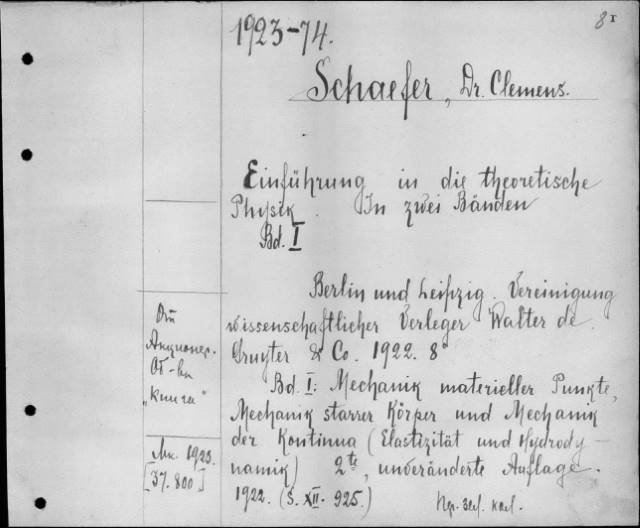 8ᴵ
1923-74.
Schaefer, Dr. Clemens.
Einführung in die theoretische
Physik. In zwei Bänden
Bd. I
Berlin und Leipzig. Vereinigung
wissenschaftlicher Verleger Walter de
Gruyter & Co. 1922. 8°
Bd. I: Mechanik materieller Punkte,
Mechanik starrer Körper und Mechanik
der Kontinua (Elastizität und Hydrody-
namik) 2te, unveränderte Auflage.
1922. (S. XII. 925.)
От
Акционер.
Об-ва
„Книга"
1923.
[37.800]